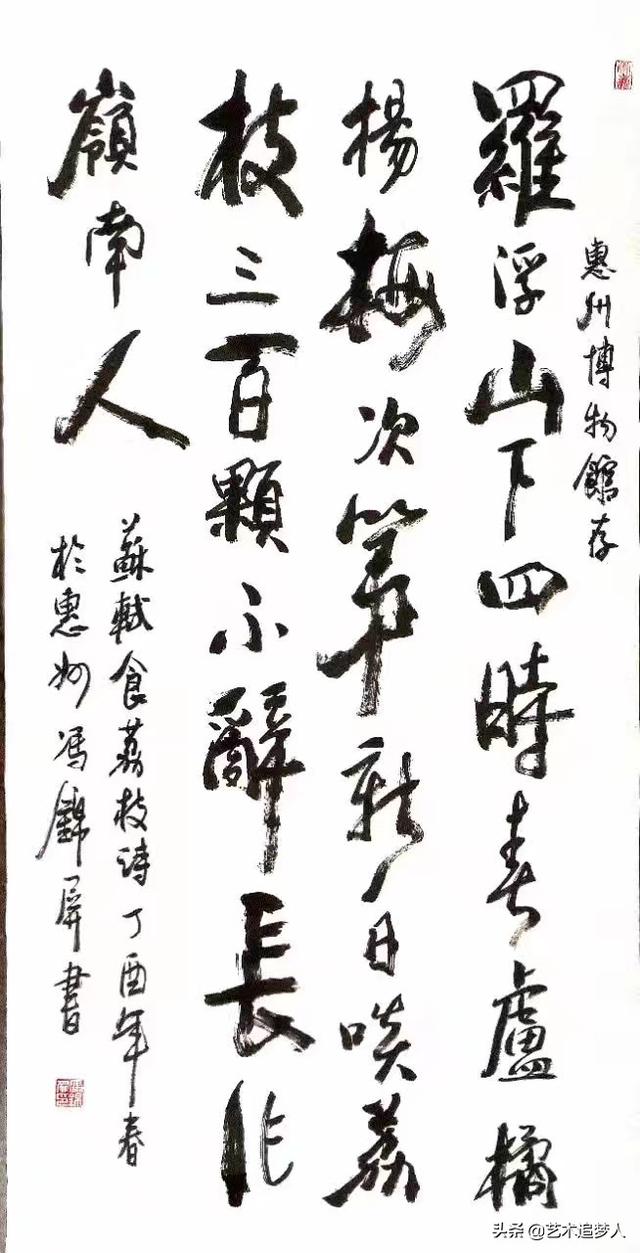 惠州博物館存
羅浮山下四時春盧橘
楊梅次第新日啖荔
枝三百顆不辭長作
嶺南人
蘇軾食荔枝詩丁酉年春
於惠州馮錦屏書
头条@艺术追梦人